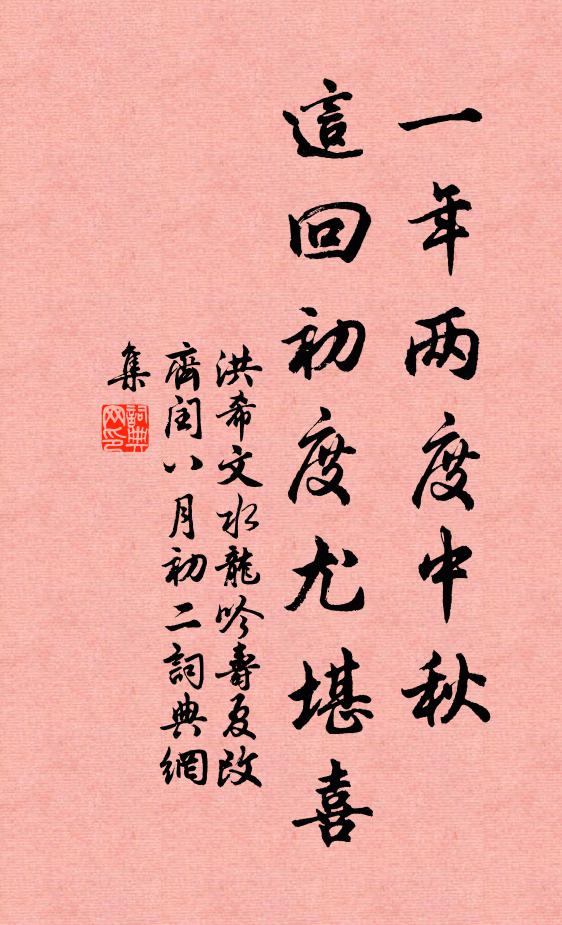 一年两度中秋
這回初度尤堪喜
洪希文水龍吟壽夏改
齋閏八月初二詞典網
集
詞典
网印